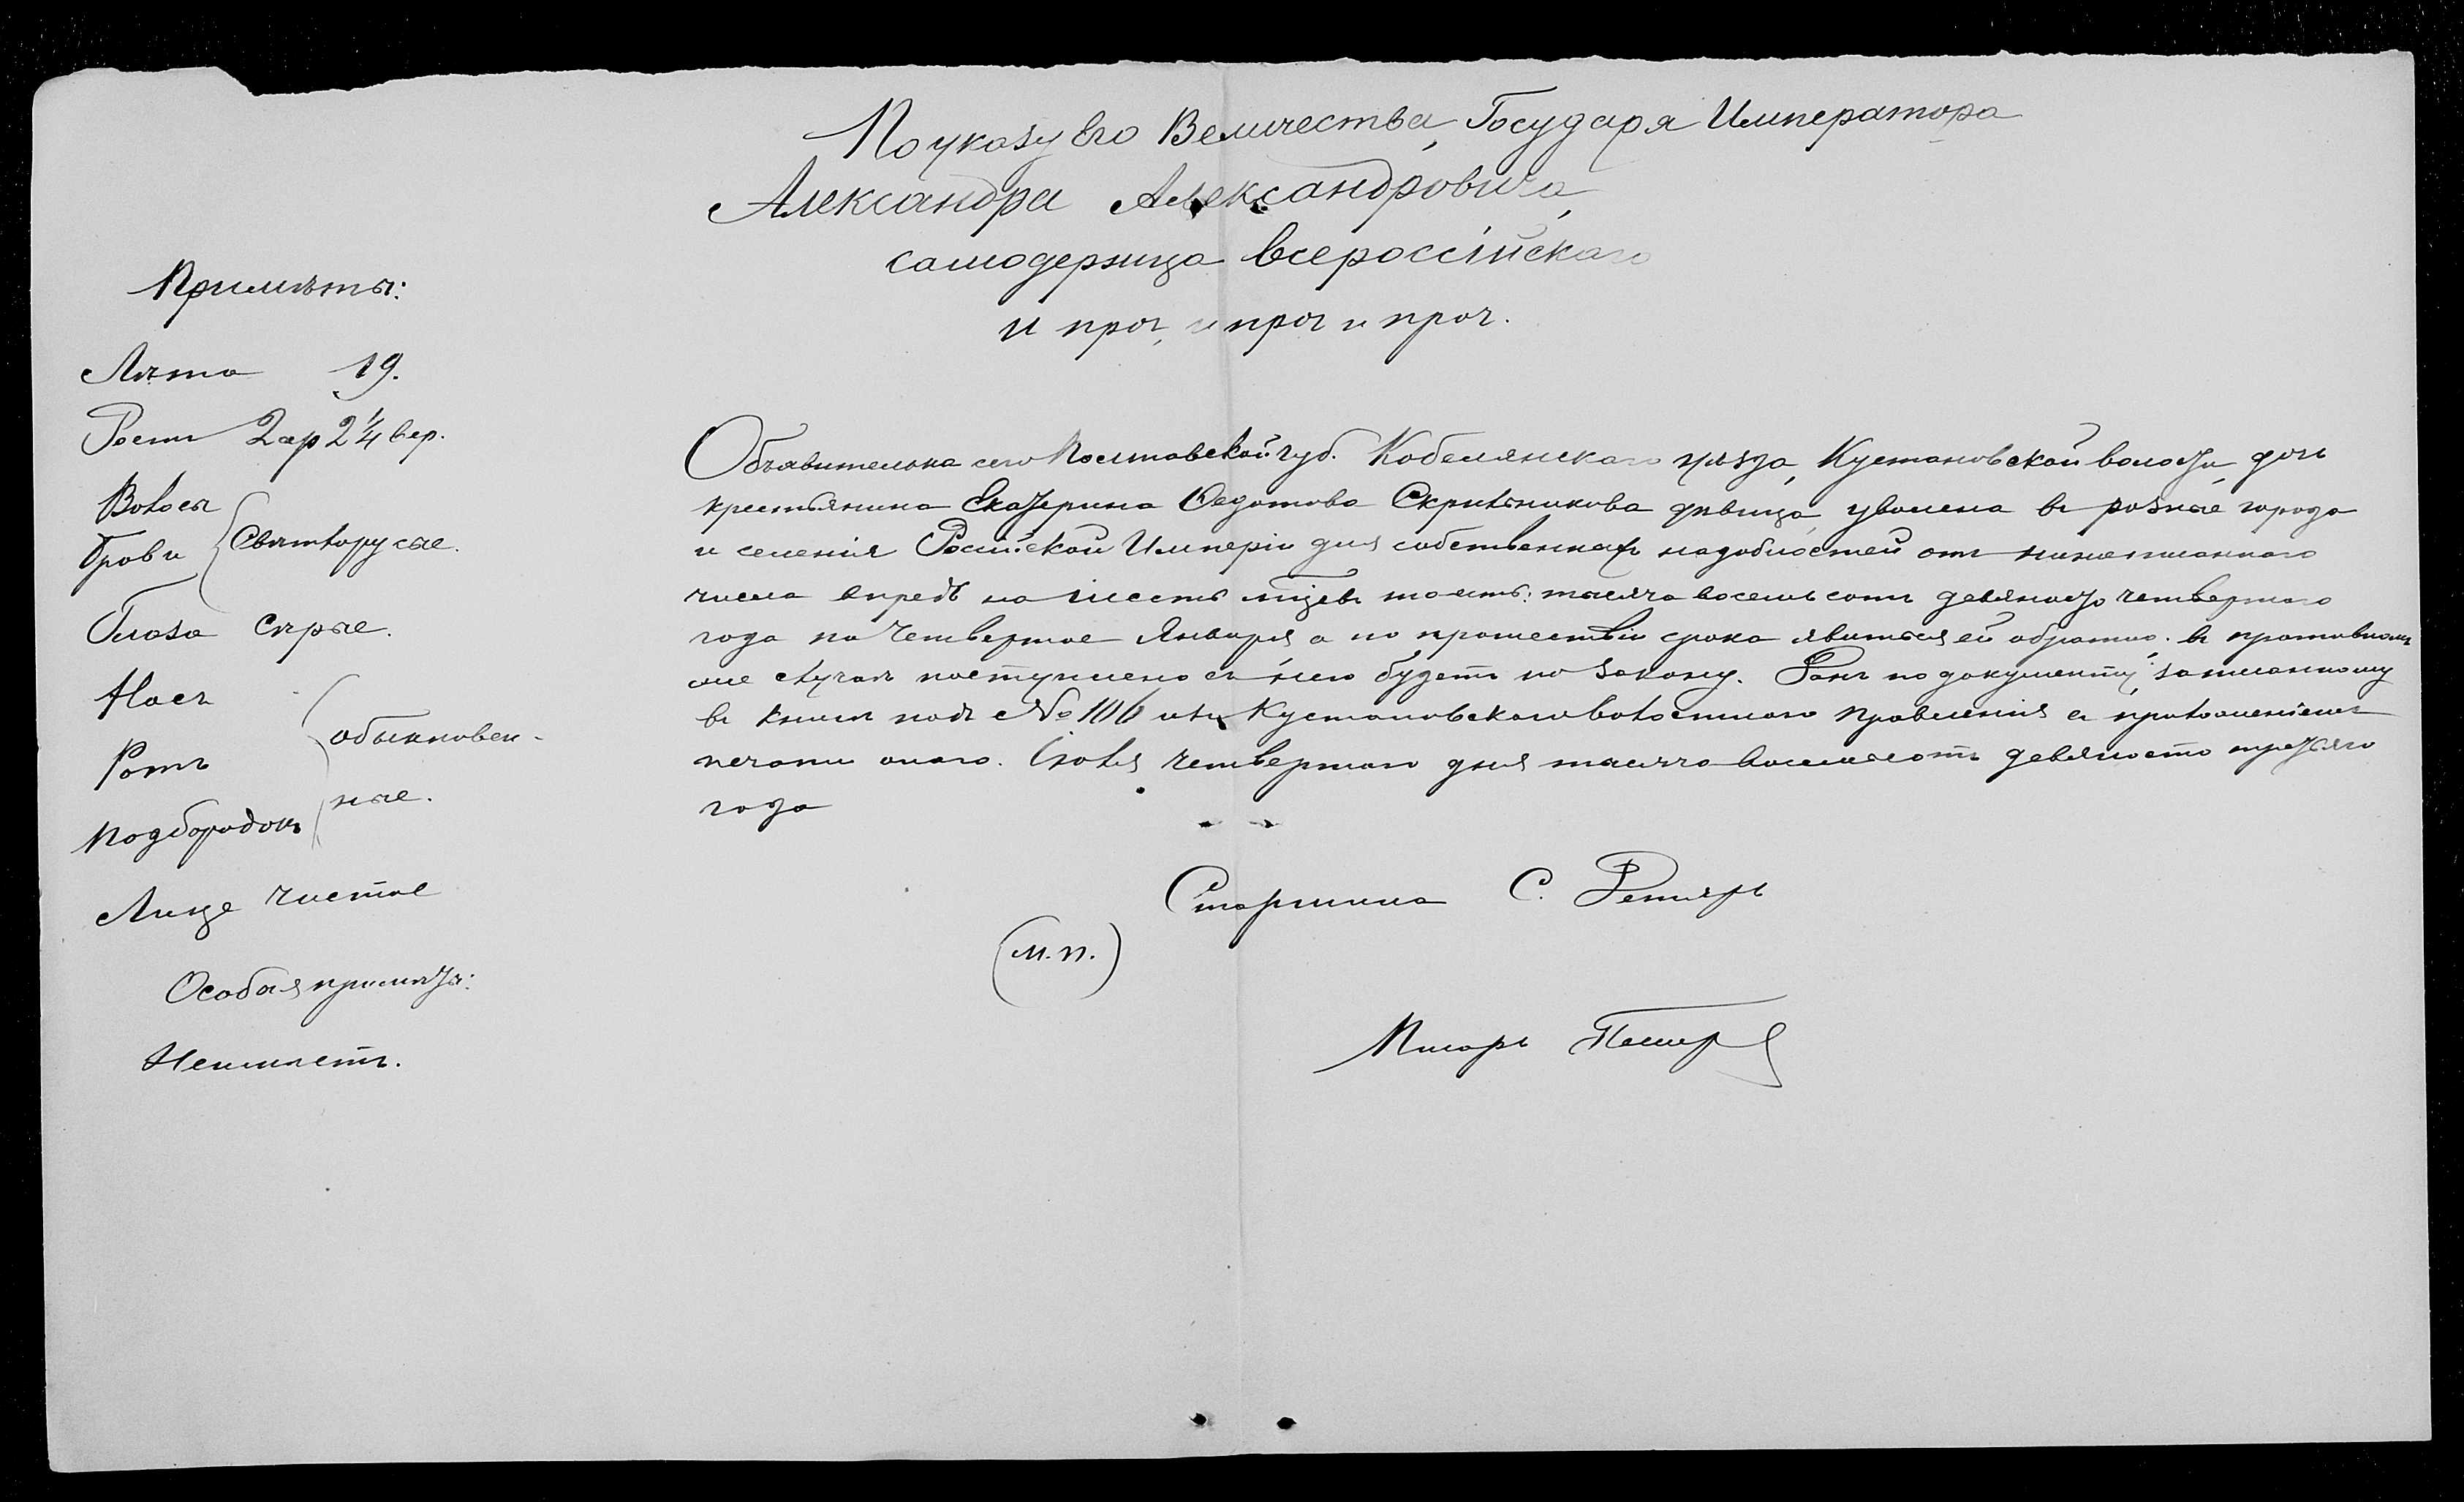 По указу Его Величества, Государя Императора
Александра Александровича,
самодержца всероссійскаго
и проч, и проч и проч.
Примѣты:
Лѣта 19.
Ростъ 2 ар 2 1/4 вер.
Волосы
Брови
Свѣтлорусые.
Глаза Сѣрые.
Носъ
Ротъ
обыкновен-
ные.
Подбородокъ
Лице чистое
Особыя примѣты:
Неимѣетъ.
Объявительна сего Полтавской губ. Кобелянскаго уѣзда, Кустоновской волости дочь
крестьянина Екатерина Федотова Скрильникова дѣвица, уволена въ разные города
и селенія Россійской Имперіи для собственныхъ надобностей отъ нижеписаннаго
числа впредь на шесть мѣцевъ то есть: тысяча восемьсотъ девяносто четвертаго
года по Четвертое Января а по прошествіи срока явиться ей обратно. въ противномъ
же случаѣ поступлено съ нею будетъ по закону. Данъ по документу, записанному
въ книгѣ подъ № 106 изъ Кустоловскаго волостнаго Правленія съ приложеніемъ
печати онаго. Іюля четвертаго дня тысяча восемьсотъ девяносто третьяго
года
Старшина С.
(М.П.)
Писарь